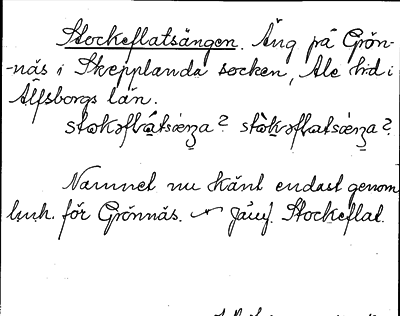 Stockeflatsängen. Äng på Grön-
-näs i Skepplanda socken, Ale hd i
Älfsborgs län.
stɑkəflàtsæŋa? stòkəflatsæ̀ŋa?
Namnet nu känt endast genom
lmh. för Grönnäs. — Jämf. Stockeflat.